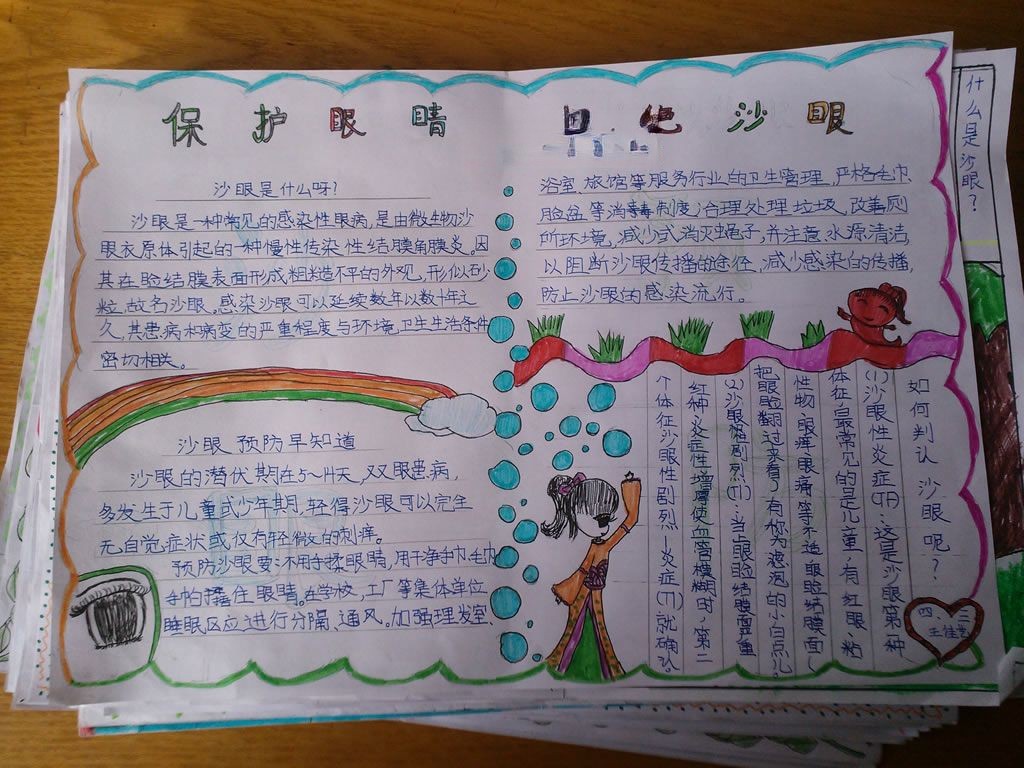 保护眼睛
沙眼
沙眼是什么呀?
沙眼是一种常见的感染性眼病,是由微生物沙
眼衣原体引起的一种慢性传染性结膜角膜炎。因
其在睑结膜表面形成粗糙不平的外观,形似砂
粒,故名沙眼。感染沙眼可以延续数年以数十年之
久,其患病和病变的严重程度与环境卫生生活条件
密切相关。
沙眼预防早知道
沙眼的潜伏期在5~14天,双眼患病,
多发生于儿童或少年期,轻得沙眼可以完全
无自觉症状或仅有轻微的刺痒。
预防沙眼要:不用手揉眼睛,用干净手巾毛巾
住眼睛。在学校,工厂等集体单位
睡眠区应进行分隔、通风。加强理发室、
浴室旅馆等服务行业的卫生管理,严格毛巾
脸盆等消毒制度;合理处理垃圾,改善厕
所环境,减少或消灭蝇子,并注意水源清洁,
以阻断沙眼传播的途径,减少感染的传播,
防止沙眼的感染流行。
如何判认沙眼呢?
(1)沙眼性炎症(TF)这是沙眼第一种
体征最常见的是儿童,有红眼、粘
性物,眼痒眼痛等不适眼睑结膜面(
把眼睑翻过来看)有称为滤泡的小白点儿。
(2)沙眼性剧烈(TI):当上眼睑结膜严重
红种炎症性增厚使血管模糊时,第二
个体征沙眼性剧烈—炎症(TI)就确认。
四、三
王佳
什么是沙眼?